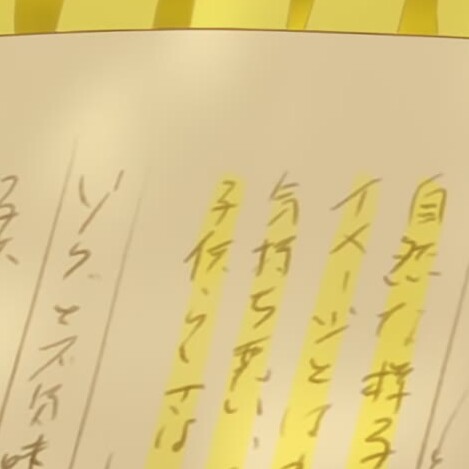 自然な様子
イメージとは
気持ち悪い、
子供らしさは
ゾクっと不気味